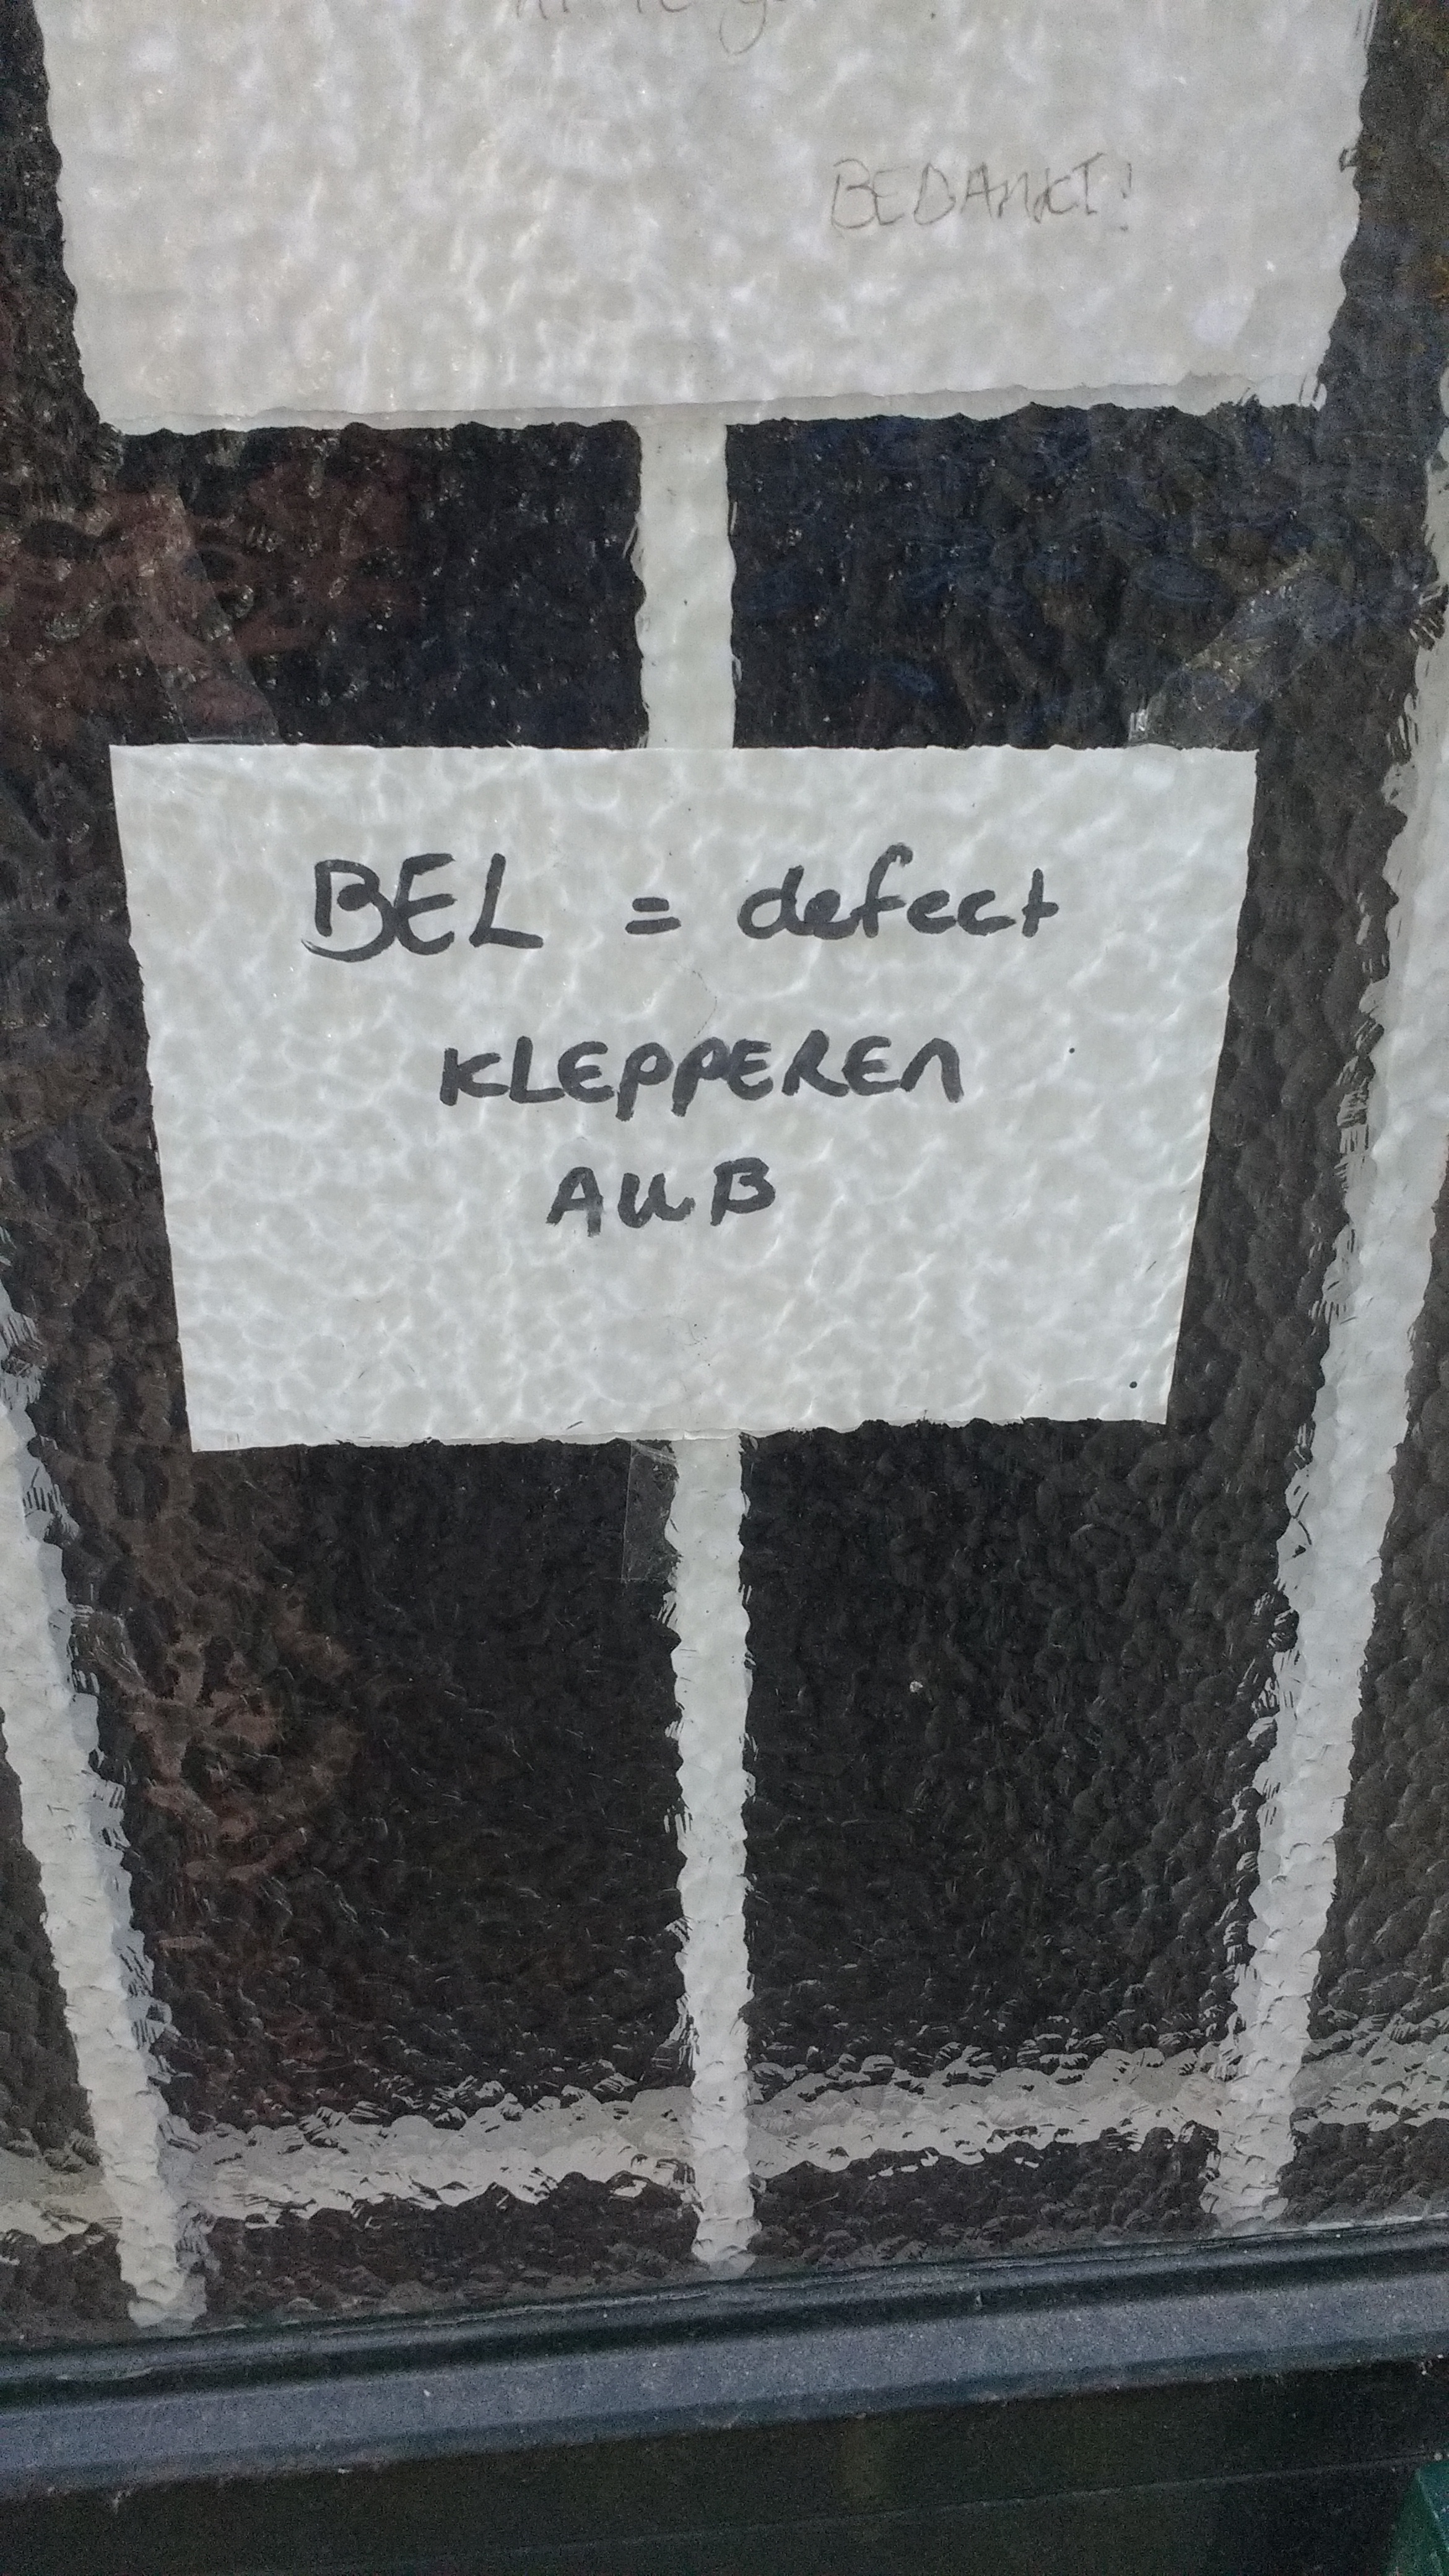 BEDANKT!
BEL = defect
KLEPPEREN
AUB